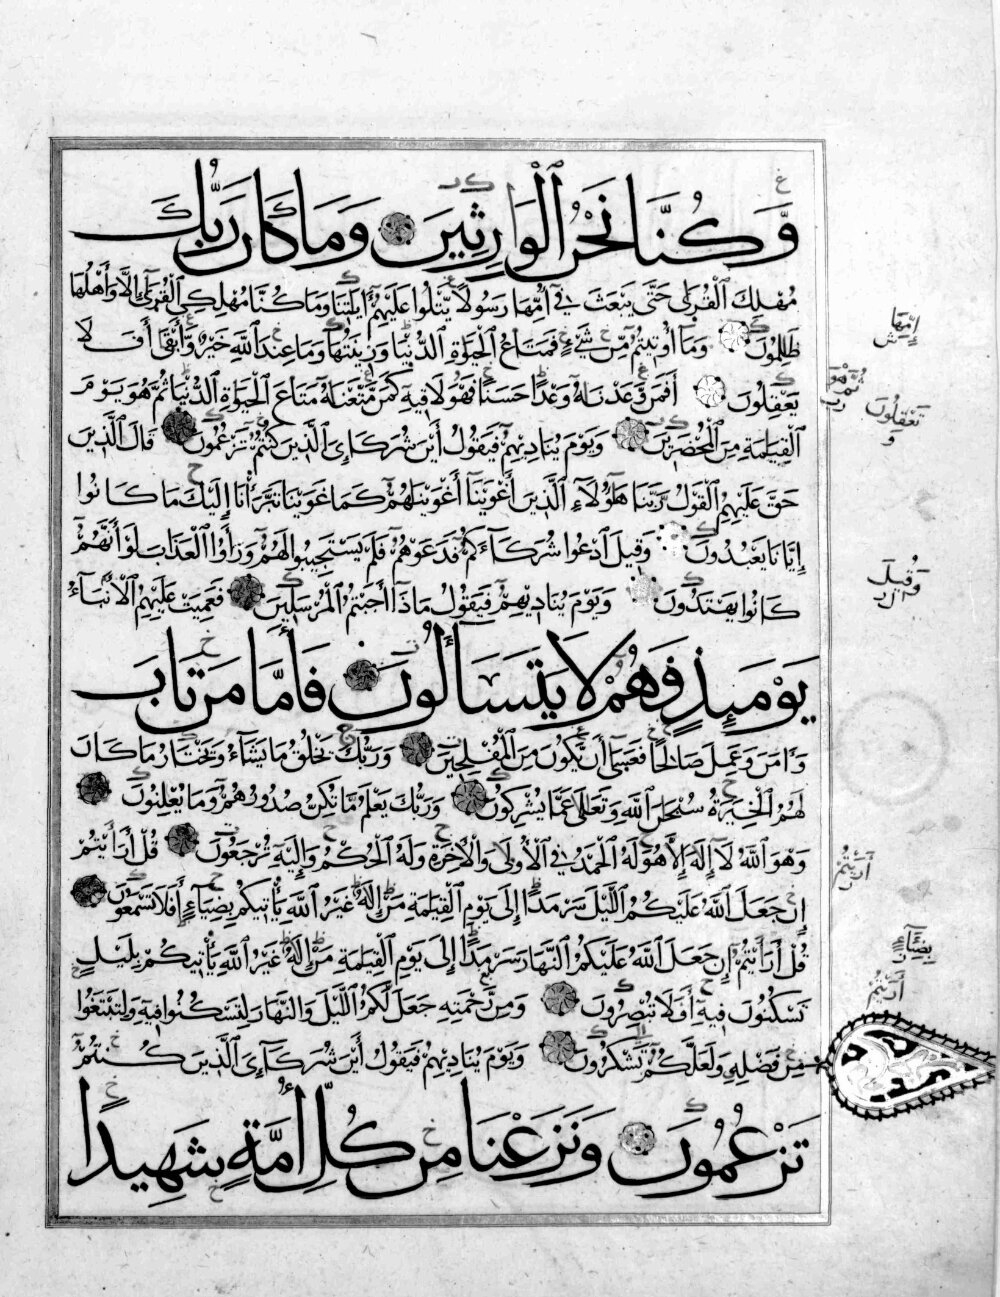 وَكُنَّا نَحْنُ الْوَارِثِينَ وَمَا كَانَ رَبُّكَ
مُهْلِكَ الْقُرَىٰ حَتَّىٰ يَبْعَثَ فِي أُمِّهَا رَسُولًا يَتْلُوا عَلَيْهِمْ آيَاتِنَا وَمَا كُنَّا مُهْلِكِي الْقُرَىٰ إِلَّا وَأَهْلُهَا
ظَالِمُونَ وَمَا أُوتِيتُمْ مِنْ شَيْءٍ فَمَتَاعُ الْحَيَاةِ الدُّنْيَا وَزِينَتُهَا وَمَا عِنْدَ اللَّهِ خَيْرٌ وَأَبْقَىٰ أَفَلَا
يَعْقِلُونَ أَفَمَنْ وَعَدْنَاهُ وَعْدًا حَسَنًا فَهُوَ لَاقِيهِ كَمَنْ مَتَّعْنَاهُ مَتَاعَ الْحَيَاةِ الدُّنْيَا ثُمَّ هُوَ يَوْمَ
الْقِيَامَةِ مِنَ الْمُحْضَرِينَ وَيَوْمَ يُنَادِيهِمْ فَيَقُولُ أَيْنَ شُرَكَائِيَ الَّذِينَ كُنْتُمْ تَزْعُمُونَ قَالَ الَّذِينَ
حَقَّ عَلَيْهِمُ الْقَوْلُ رَبَّنَا هَٰؤُلَاءِ الَّذِينَ أَغْوَيْنَا أَغْوَيْنَاهُمْ كَمَا غَوَيْنَا تَبَرَّأْنَا إِلَيْكَ مَا كَانُوا
إِيَّانَا يَعْبُدُونَ وَقِيلَ ادْعُوا شُرَكَاءَكُمْ فَدَعَوْهُمْ فَلَمْ يَسْتَجِيبُوا لَهُمْ وَرَأَوُا الْعَذَابَ لَوْ أَنَّهُمْ
كَانُوا يَهْتَدُونَ وَيَوْمَ يُنَادِيهِمْ فَيَقُولُ مَاذَا أَجَبْتُمُ الْمُرْسَلِينَ فَعَمِيَتْ عَلَيْهِمُ الْأَنْبَاءُ
يَوْمَئِذٍ فَهُمْ لَا يَتَسَاءَلُونَ فَأَمَّا مَنْ تَابَ
وَآمَنَ وَعَمِلَ صَالِحًا فَعَسَىٰ أَنْ يَكُونَ مِنَ الْمُفْلِحِينَ وَرَبُّكَ يَخْلُقُ مَا يَشَاءُ وَيَخْتَارُ مَا كَانَ
لَهُمُ الْخِيَرَةُ سُبْحَانَ اللَّهِ وَتَعَالَىٰ عَمَّا يُشْرِكُونَ وَرَبُّكَ يَعْلَمُ مَا تُكِنُّ صُدُورُهُمْ وَمَا يُعْلِنُونَ
وَهُوَ اللَّهُ لَا إِلَٰهَ إِلَّا هُوَ لَهُ الْحَمْدُ فِي الْأُولَىٰ وَالْآخِرَةِ وَلَهُ الْحُكْمُ وَإِلَيْهِ تُرْجَعُونَ قُلْ أَرَأَيْتُمْ
إِنْ جَعَلَ اللَّهُ عَلَيْكُمُ اللَّيْلَ سَرْمَدًا إِلَىٰ يَوْمِ الْقِيَامَةِ مَنْ إِلَٰهٌ غَيْرُ اللَّهِ يَأْتِيكُمْ بِضِيَاءٍ أَفَلَا تَسْمَعُونَ
قُلْ أَرَأَيْتُمْ إِنْ جَعَلَ اللَّهُ عَلَيْكُمُ النَّهَارَ سَرْمَدًا إِلَىٰ يَوْمِ الْقِيَامَةِ مَنْ إِلَٰهٌ غَيْرُ اللَّهِ يَأْتِيكُمْ بِلَيْلٍ
تَسْكُنُونَ فِيهِ أَفَلَا تُبْصِرُونَ وَمِنْ رَحْمَتِهِ جَعَلَ لَكُمُ اللَّيْلَ وَالنَّهَارَ لِتَسْكُنُوا فِيهِ وَلِتَبْتَغُوا
مِنْ فَضْلِهِ وَلَعَلَّكُمْ تَشْكُرُونَ وَيَوْمَ يُنَادِيهِمْ فَيَقُولُ أَيْنَ شُرَكَائِيَ الَّذِينَ كُنْتُمْ
تَزْعُمُونَ وَنَزَعْنَا مِنْ كُلِّ أُمَّةٍ شَهِيدًا
إِمِّهَا
ثُمَّ هْوَ
تَعْقِلُونَ
وَقُيلَ
أَرَيْتُمْ
بِضِئَاءٍ
أَرَيْتُمْ